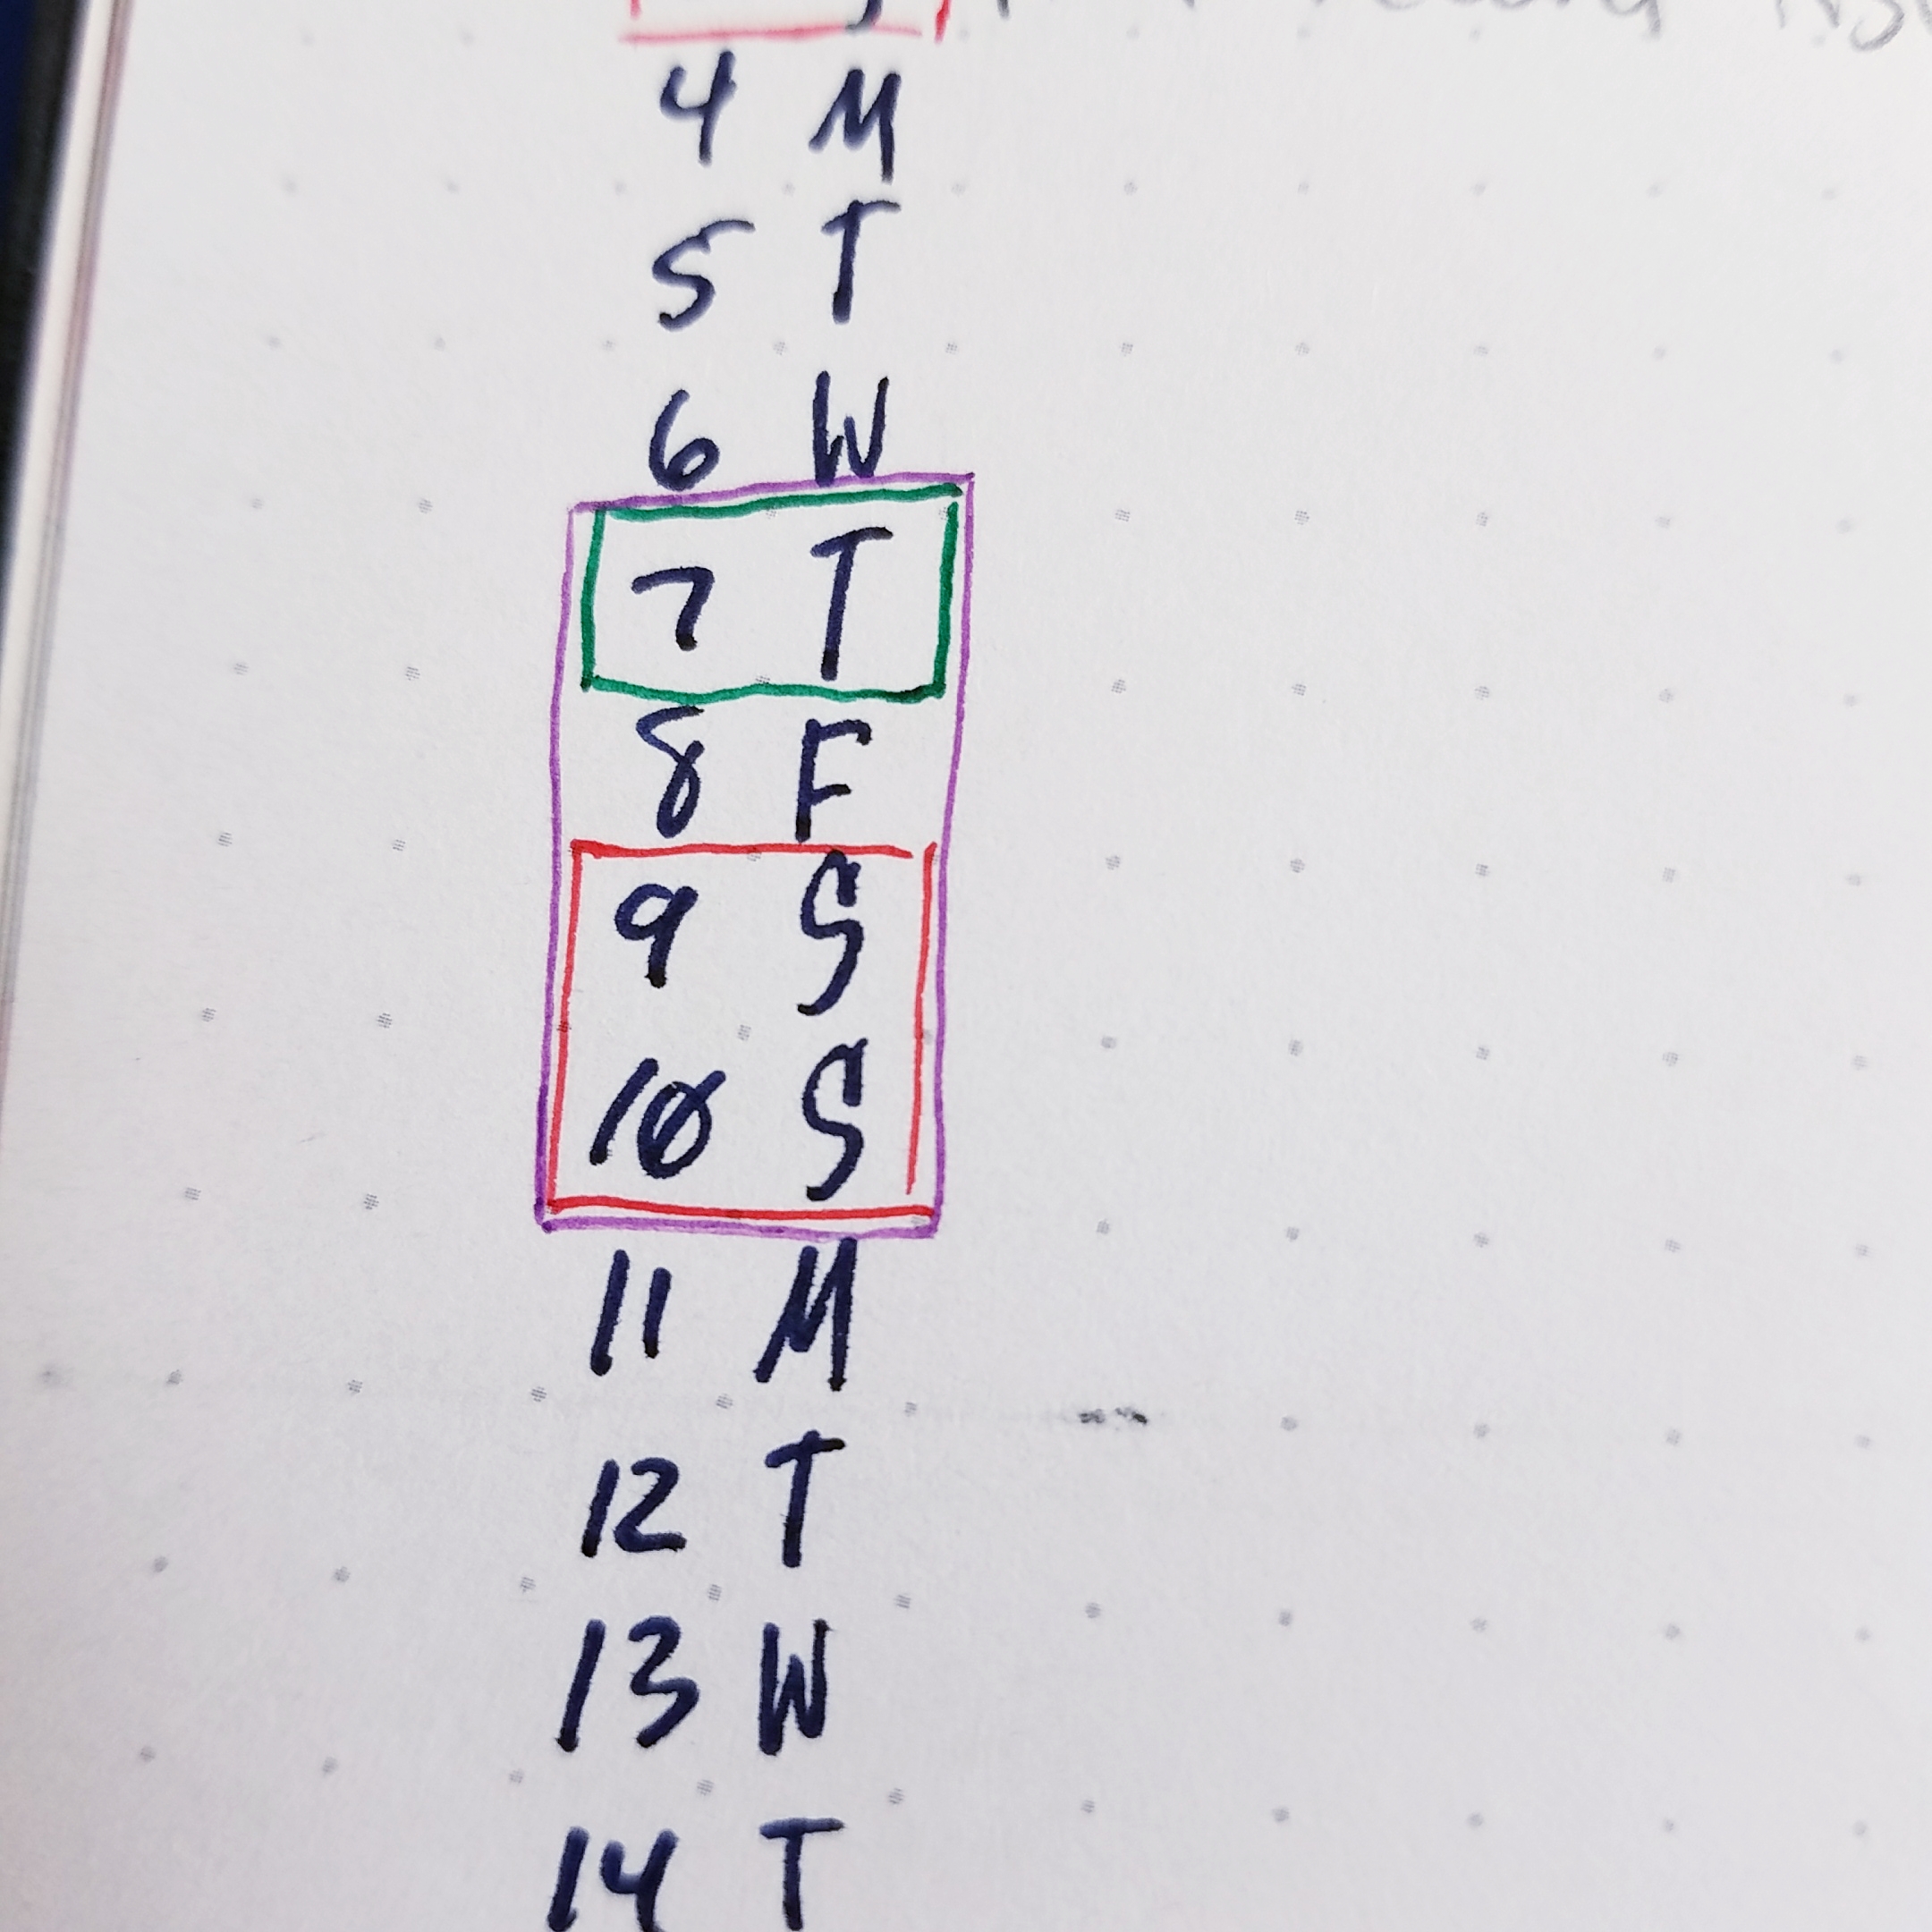 4 M
5 T
6 W
7 T
8 F
9 S
10 S
11 M
12 T
13 W
14 T